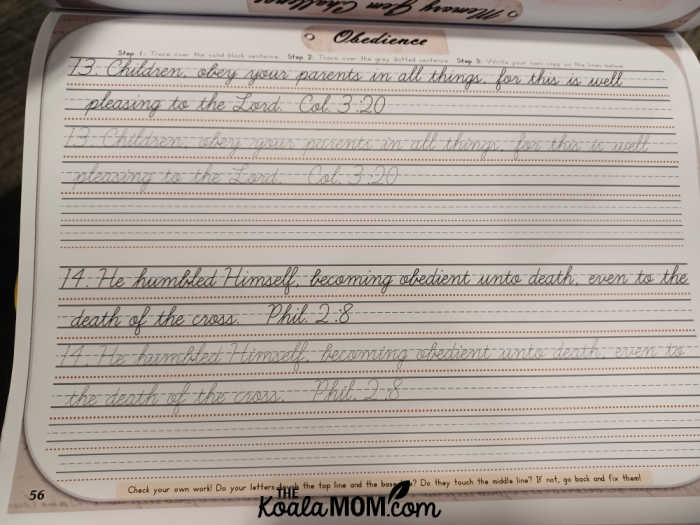 Memory Gem Challenge
Obedience
Step 1: Trace over the solid black sentence. Step 2: Trace over the gray dotted sentence. Step 3: Write your own copy on the lines below.
13. Children, obey your parents in all things, for this is well
pleasing to the Lord. Col. 3:20
13. Children, obey your parents in all things, for this is well
pleasing to the Lord. Col. 3:20
14. He humbled Himself, becoming obedient unto death, even to the
death of the cross. Phil. 2:8
14. He humbled Himself, becoming obedient unto death, even to
the death of the cross. Phil. 2:8
Check your own work! Do your letters touch the top line and the base ? Do they touch the middle line? If not, go back and fix them!
56
THE
KoalaMOM.com